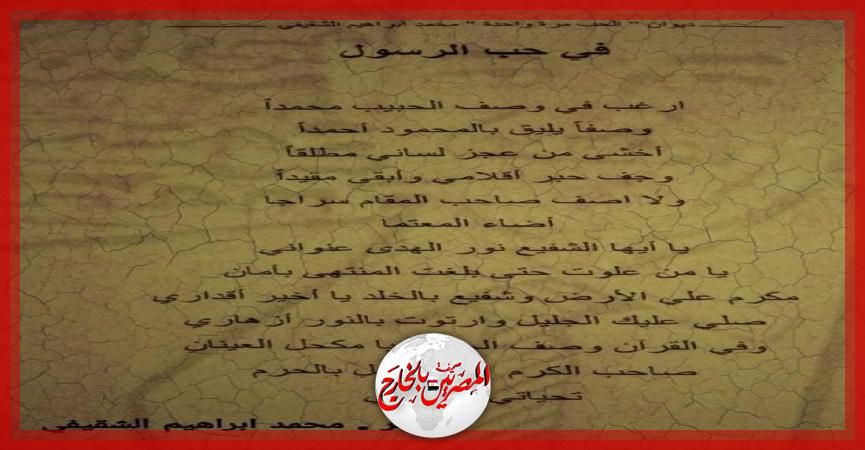 ديوان " الحب مرة واحدة " محمد ابراهيم الشقيفى
في حب الرسول
ارغب في وصف الحبيب محمداً
وصفاً يليق بالمحمود أحمداً
أخشى من عجز لساني مطلقاً
وجف حبر أقلامي وأبقى مقيداً
ولا اصف صاحب المقام سراجا
أضاء المعتما
يا أيها الشفيع نور الهدى عنواني
يا من علوت حتى بلغت المنتهى بأمان
مكرم علي الأرض وشفيع بالخلد يا أخير أقداري
صلي عليك الجليل وارتوت بالنور أزهاري
وفي القرآن وصف يا مكحل العينان
صاحب الكرم بالحرم
تحياتي
محمد ابراهيم الشقيفى
المصريين بالخارج